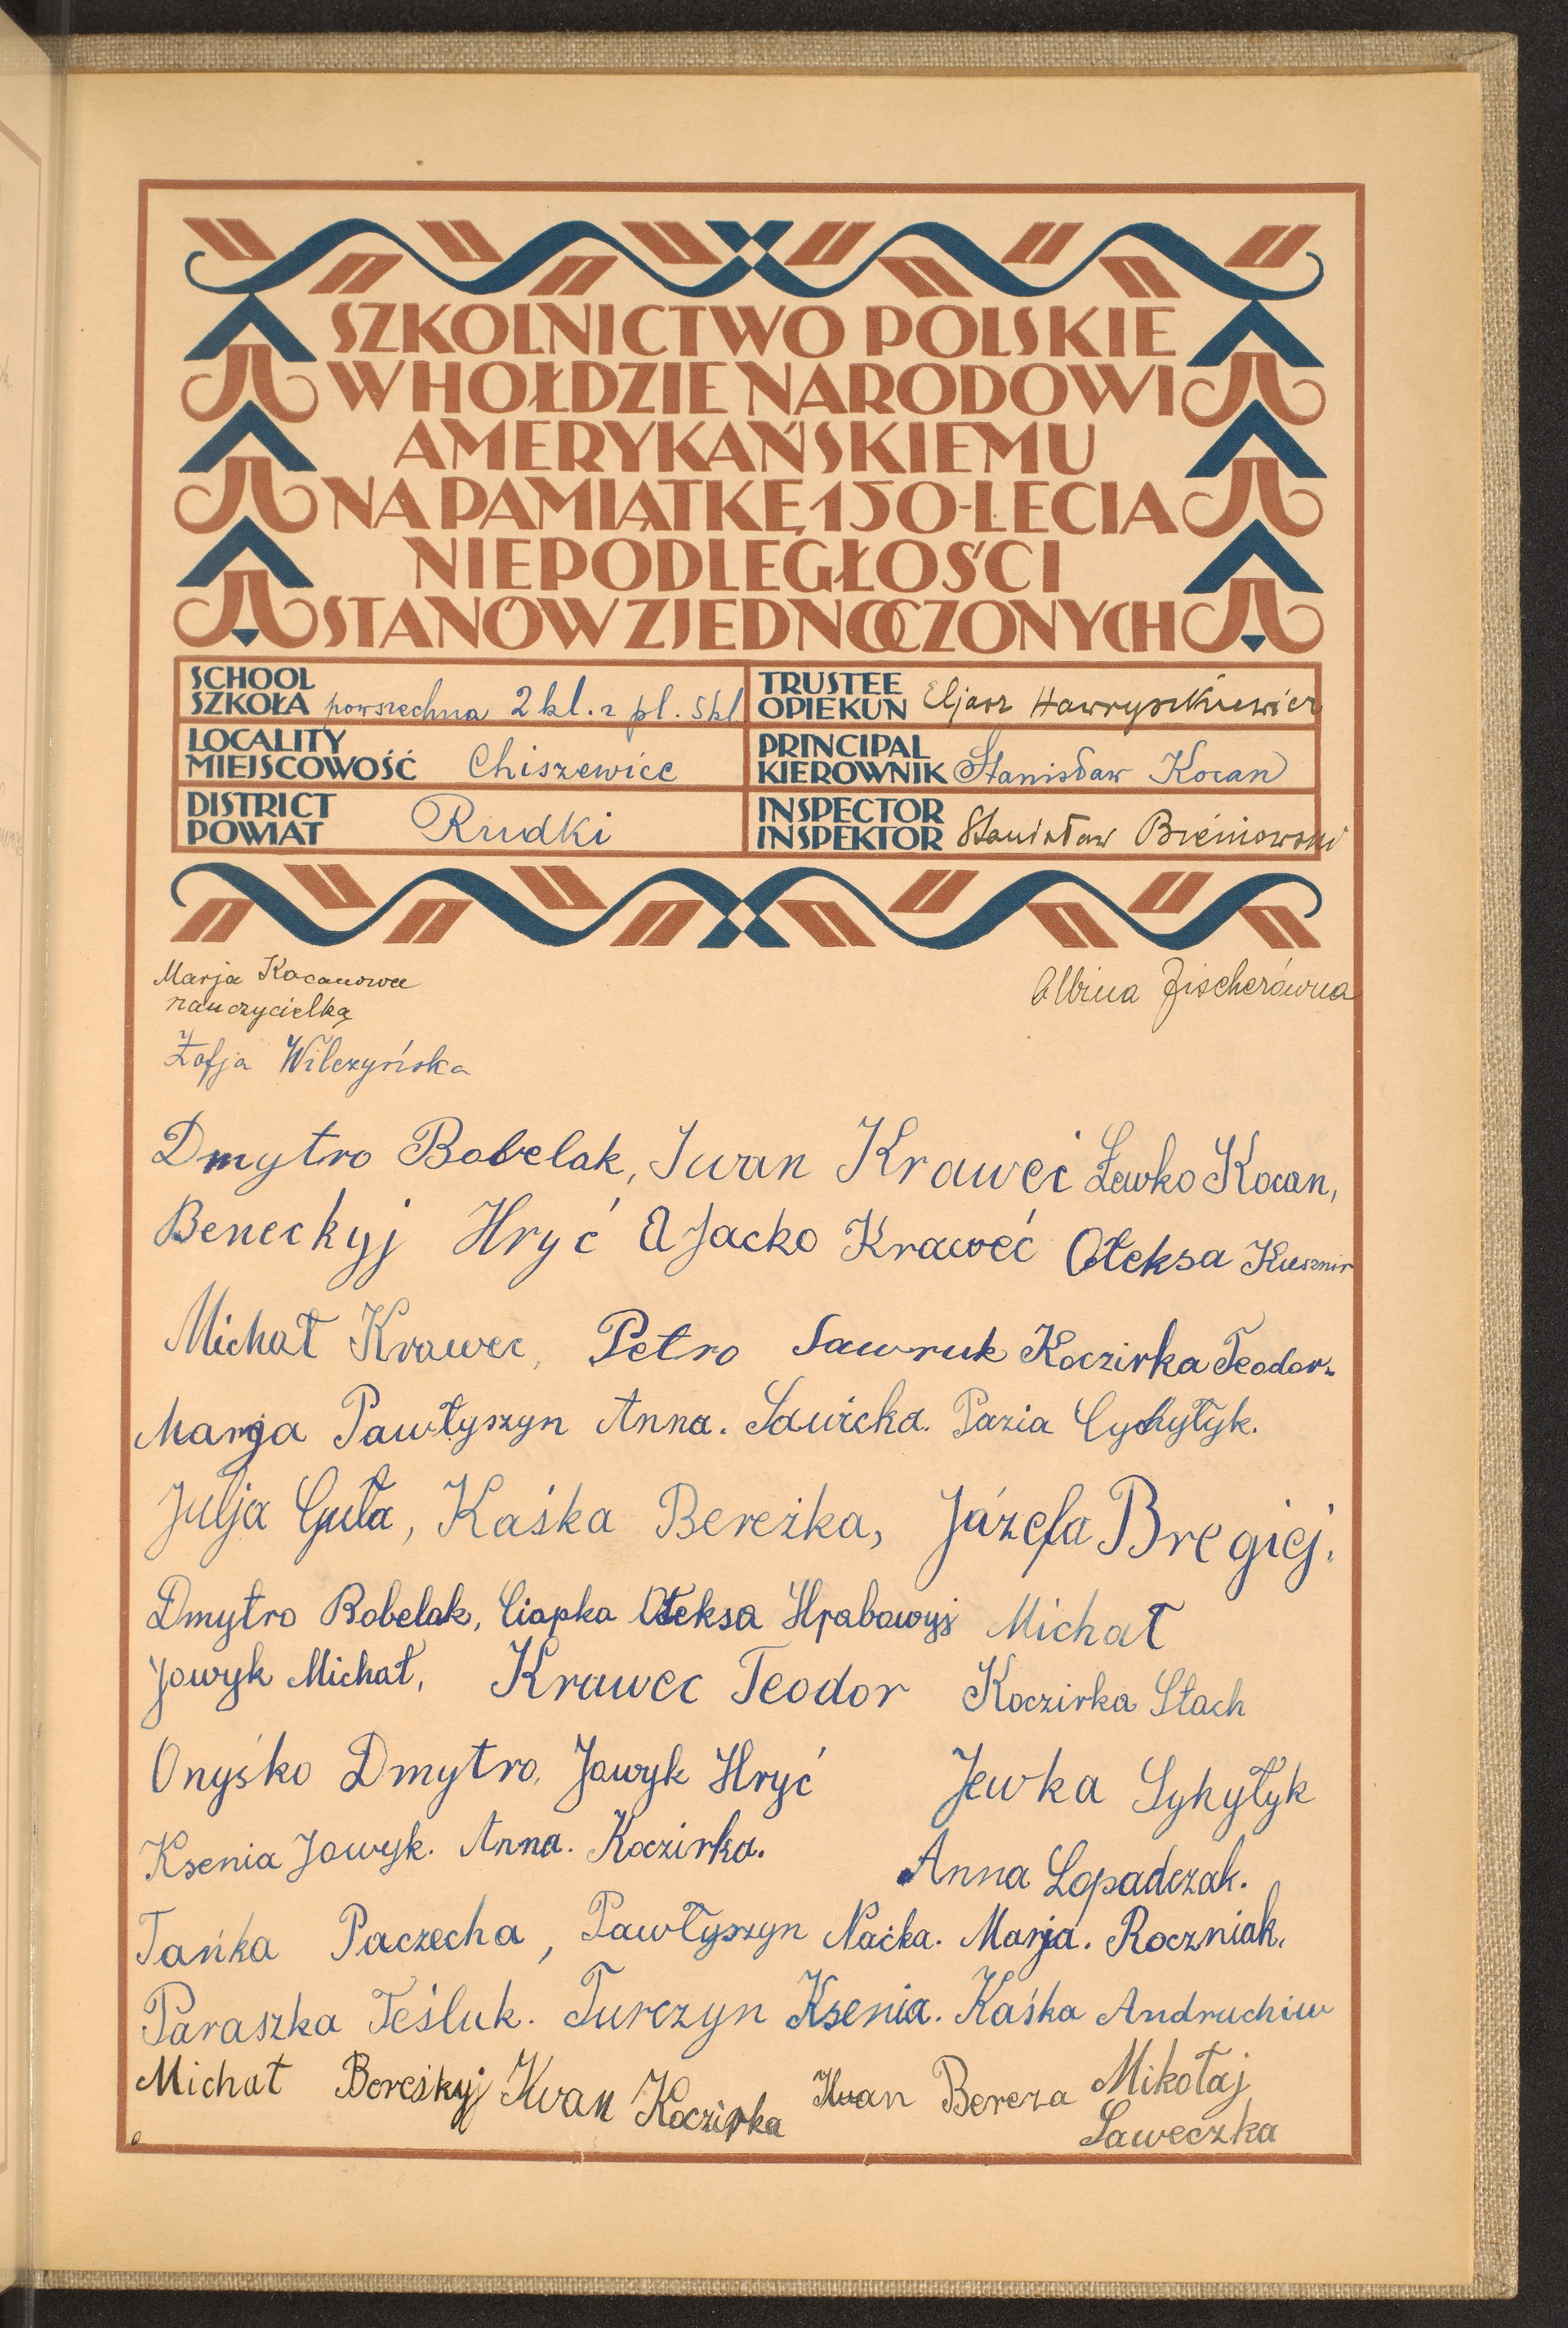 SZKOLNICTWO POLSKIE
W HOŁDZIE NARODOWI
AMERYKAŃSKIEMU
NA PAMIĄTKĘ 150-LECIA
NIEPODLEGŁOŚCI
STANÓW ZJEDNOCZONYCH
SCHOOL
SZKOŁA powszechna 2 kl. z pl. 5 kl
TRUSTEE
OPIEKUN Eljasz Hawryszkiewicz
LOCALITY
MIEJSCOWOŚĆ Chiszewice
PRINCIPAL
KIEROWNIK Stanisław Kocan
DISTRICT
POWIAT Rudki
INSPECTOR
INSPEKTOR Stanisław Bieniowski
Marja Kocanowa
nauczycielka
Albina Fischerówna
Zofja Wilczyńska
Dmytro Bobelak, Iwan Kraweć Lewko Kocan,
Beneckyj Hryć Jacko Kraweć Ołeksa Kusznir
Michał Krawec, Petro Sawruk Koczirka Teodor.
Marja Pawłyszyn Anna. Sawicka. Pazia Cychyłyk.
Julja Guła, Kaśka Bereżka, Józefa Bregiej.
Dmytro Bobelak, Ciapka Ołeksa Hrabowyj Michał
Jowyk Michał, Krawec Teodor Koczirka Stach
Onyśko Dmytro, Jowyk Hryć Jewka Sykyłyk
Ksenia Jowyk. Anna. Koczirka. Anna Lopadczak.
Tańka Paczecha, Pawłyszyn Naćka. Marja. Roczniak.
Paraszka Teśluk. Turczyn Ksenia. Kaśka Andruchiw
Michał Bereśkyj Iwan Koczirka Iwan Bereza Mikołaj
Saweczka